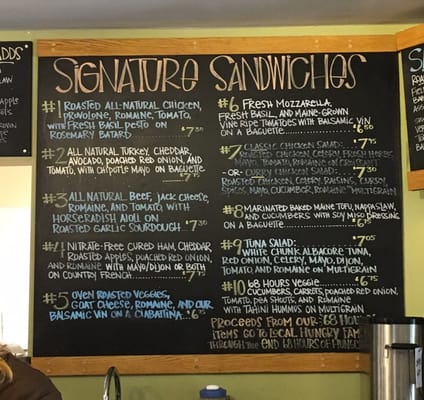 SIGNATURE SANDWICHES
#1 ROASTED ALL-NATURAL CHICKEN,
PROVOLONE, ROMAINE, TOMATO,
WITH FRESH BASIL PESTO ON
ROSEMARY BATARD $7.30
#2 ALL NATURAL TURKEY, CHEDDAR,
AVOCADO, POACHED RED ONION, AND
TOMATO, WITH CHIPOTLE MAYO ON BAGUETTE
#3 ALL NATURAL BEEF, JACK CHEESE,
ROMAINE, AND TOMATO WITH
HORSERADISH AIOLI ON
ROASTED GARLIC SOURDOUGH $7.30
NITRATE-FREE CURED HAM, CHEDDAR,
ROASTED APPLES, POACHED RED ONION,
AND ROMAINE WITH MAYO/DIJON OR BOTH
ON COUNTRY FRENCH
#5 OVEN ROASTED VEGGIES,
GOAT CHEESE, ROMAINE, AND OUR
BALSAMIC VIN ON A CIABATTINA $6.75
#6 FRESH MOZZARELLA,
FRESH BASIL, AND MAINE-GROWN
VINE RIPE TOMATOES WITH BALSAMIC VIN
ON A BAGUETTE $6.50
#7 CLASSIC CHICKEN SALAD:
ROASTED CHICKEN, CELERY, FRESH HERBS,
MAYO, TOMATO, ROMAINE ON CROISSANT
-OR- CURRY CHICKEN SALAD: $7.30
ROASTED CHICKEN, CELERY, RAISINS, CURRY
SPICES, MAYO, CUCUMBER, ROMAINE MULTIGRAIN
#8 MARINATED BAKED MAINE TOFU, NAPPA SLAW,
AND CUCUMBERS WITH SOY MISO DRESSING
ON A BAGUETTE $6.75
#9 TUNA SALAD: $7.05
WHITE CHUNK ALBACORE TUNA,
RED ONION, CELERY, MAYO, DIJON,
TOMATO AND ROMAINE ON MULTIGRAIN
#10 68 HOURS VEGGIE $6.75
CUCUMBERS, CARROTS, POACHED RED ONION,
TOMATO, PEA SHOOTS, AND ROMAINE
WITH TAHINI HUMMUS ON MULTIGRAIN
PROCEEDS FROM OUR "68 HO
ITEMS GO TO LOCAL HUNGRY FAM
THROUGH THE END 68 HOURS OF HUNGER